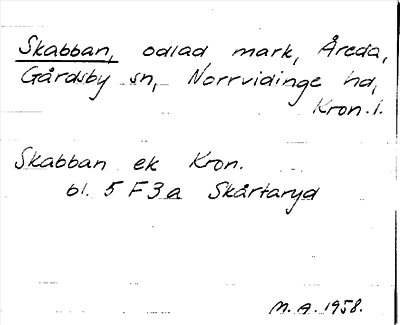 Skabban, odlad mark, Åreda,
Gårdsby sn, Norrvidinge hd,
Kron. l.
Skabban ek Kron.
bl. 5 F 3 a Skårtaryd
M. A. 1958.